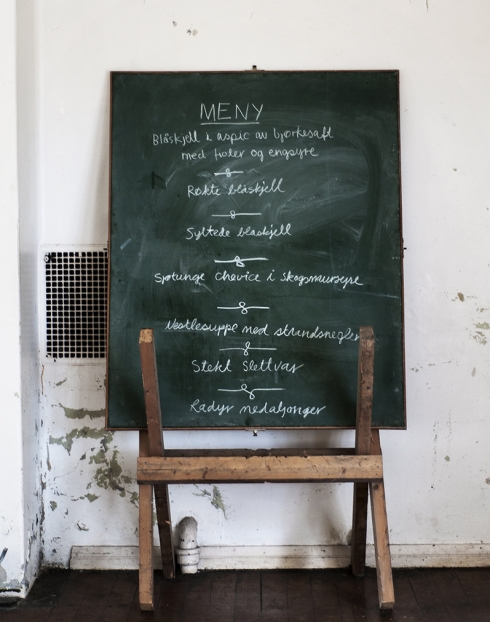 MENY
Blåskjell i aspic av bjørkesaft
med trøter og engsyre
Røkte blåskjell
Syltede blåskjell
Sjøtunge chevice i skogsmursyre
Neslesuppe med strandsnegler
Stekt slettvar
Rådyr medaljonger